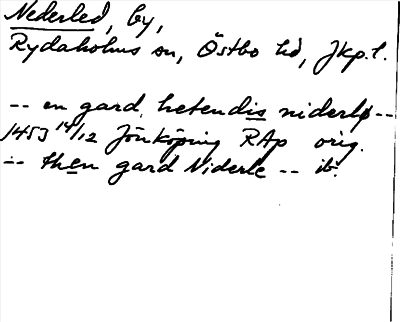 Nederled, by,
Rydaholms sn, Östbo hd, Jkp. l.
-- en gard, hetendis niderlø --
1453 14/12 Jönköping RAp orig.
-- then gard Niderle -- ib.